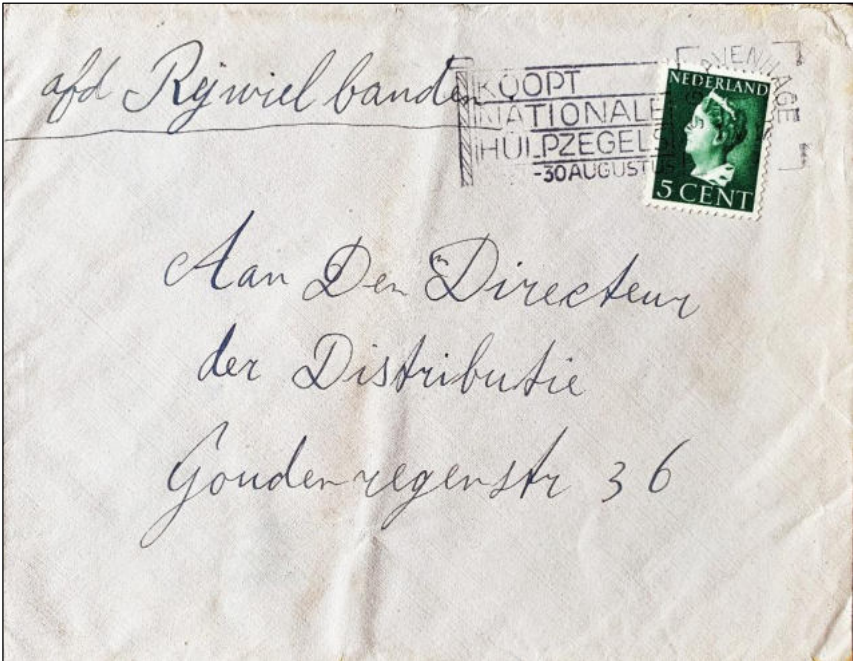 afd Rijwiel banden
KOOPT
NATIONALE
HULPZEGELS
-30 AUGUSTUS
NEDERLAND
5 CENT
Aan Den Directeur
der Distributie
Goudenregenstr 36